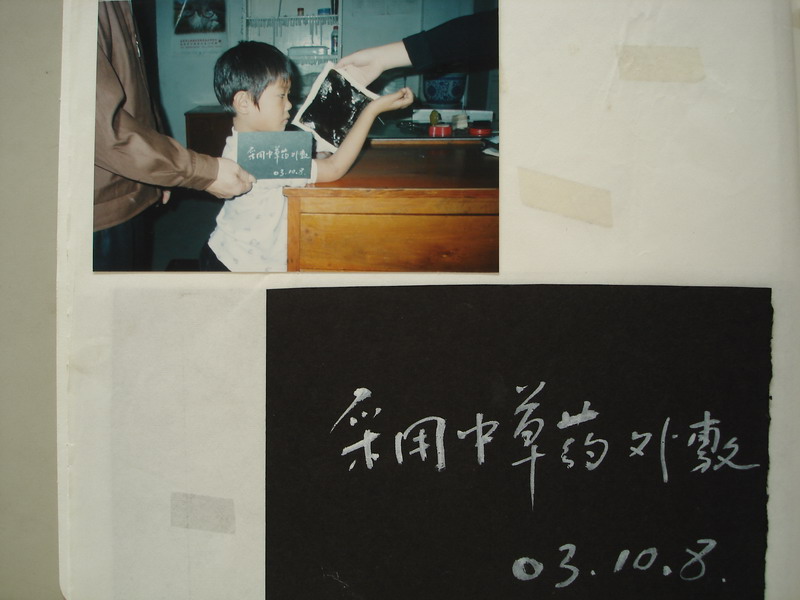 采用中草药外敷
03.10.8.
采用中草药外敷
03.10.8.